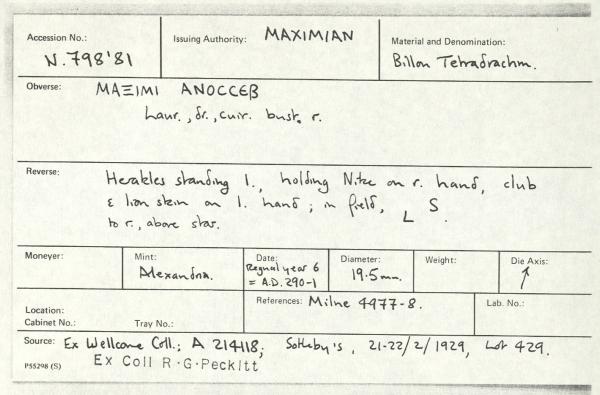 Accession No.: N.798'81
Issuing Authority: MAXIMIAN
Material and Denomination: Billon Tetradrachm.
Obverse: MAΞIMI ANOCCEB
Laur., dr., cuir. bust. r.
Reverse: Herakles standing l., holding Nike on r. hand, club
& lion skin on l. hand; in field, L S.
to r., above star.
Moneyer:
Mint: Alexandria.
Date: Regnal year 6
= A.D. 290-1
Diameter: 19.5mm.
Weight:
Die Axis: ↑
Location:
Cabinet No.: Tray No.:
References: Milne 4977-8.
Lab. No.:
Source: Ex Wellcome Coll.; A 214118; Sotheby's, 21-22/2/1929, Lot 429.
P55298 (S) Ex Coll R·G·Peckitt